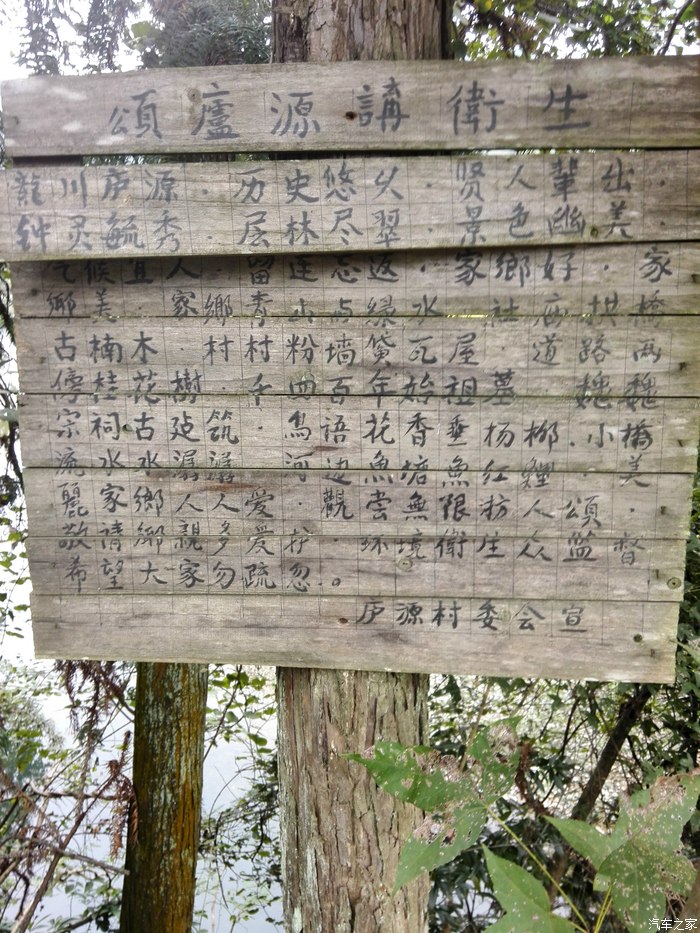 頌廬源講衛生
龍川庐源．历史悠久．贤人輩出．
钟灵毓秀．层林尽翠．景色幽美．
气候宜人．留连忘返．家鄉好．家
鄉美．家鄉青山与绿水．社庙拱橋
古楠木．村村粉墙黛瓦屋．道路两
傍桂花樹．千四百年始祖墓．魏魏
宗祠古建筑．鸟语花香垂杨柳．小橋
流水水潺潺．河边魚塘魚红鯉．美
麗家鄉人人爱．觀尝無限游人頌．
敬請鄉親多爱护．环境衛生众监督．
希望大家勿疏忽．。
庐源村委会宣
汽车之家